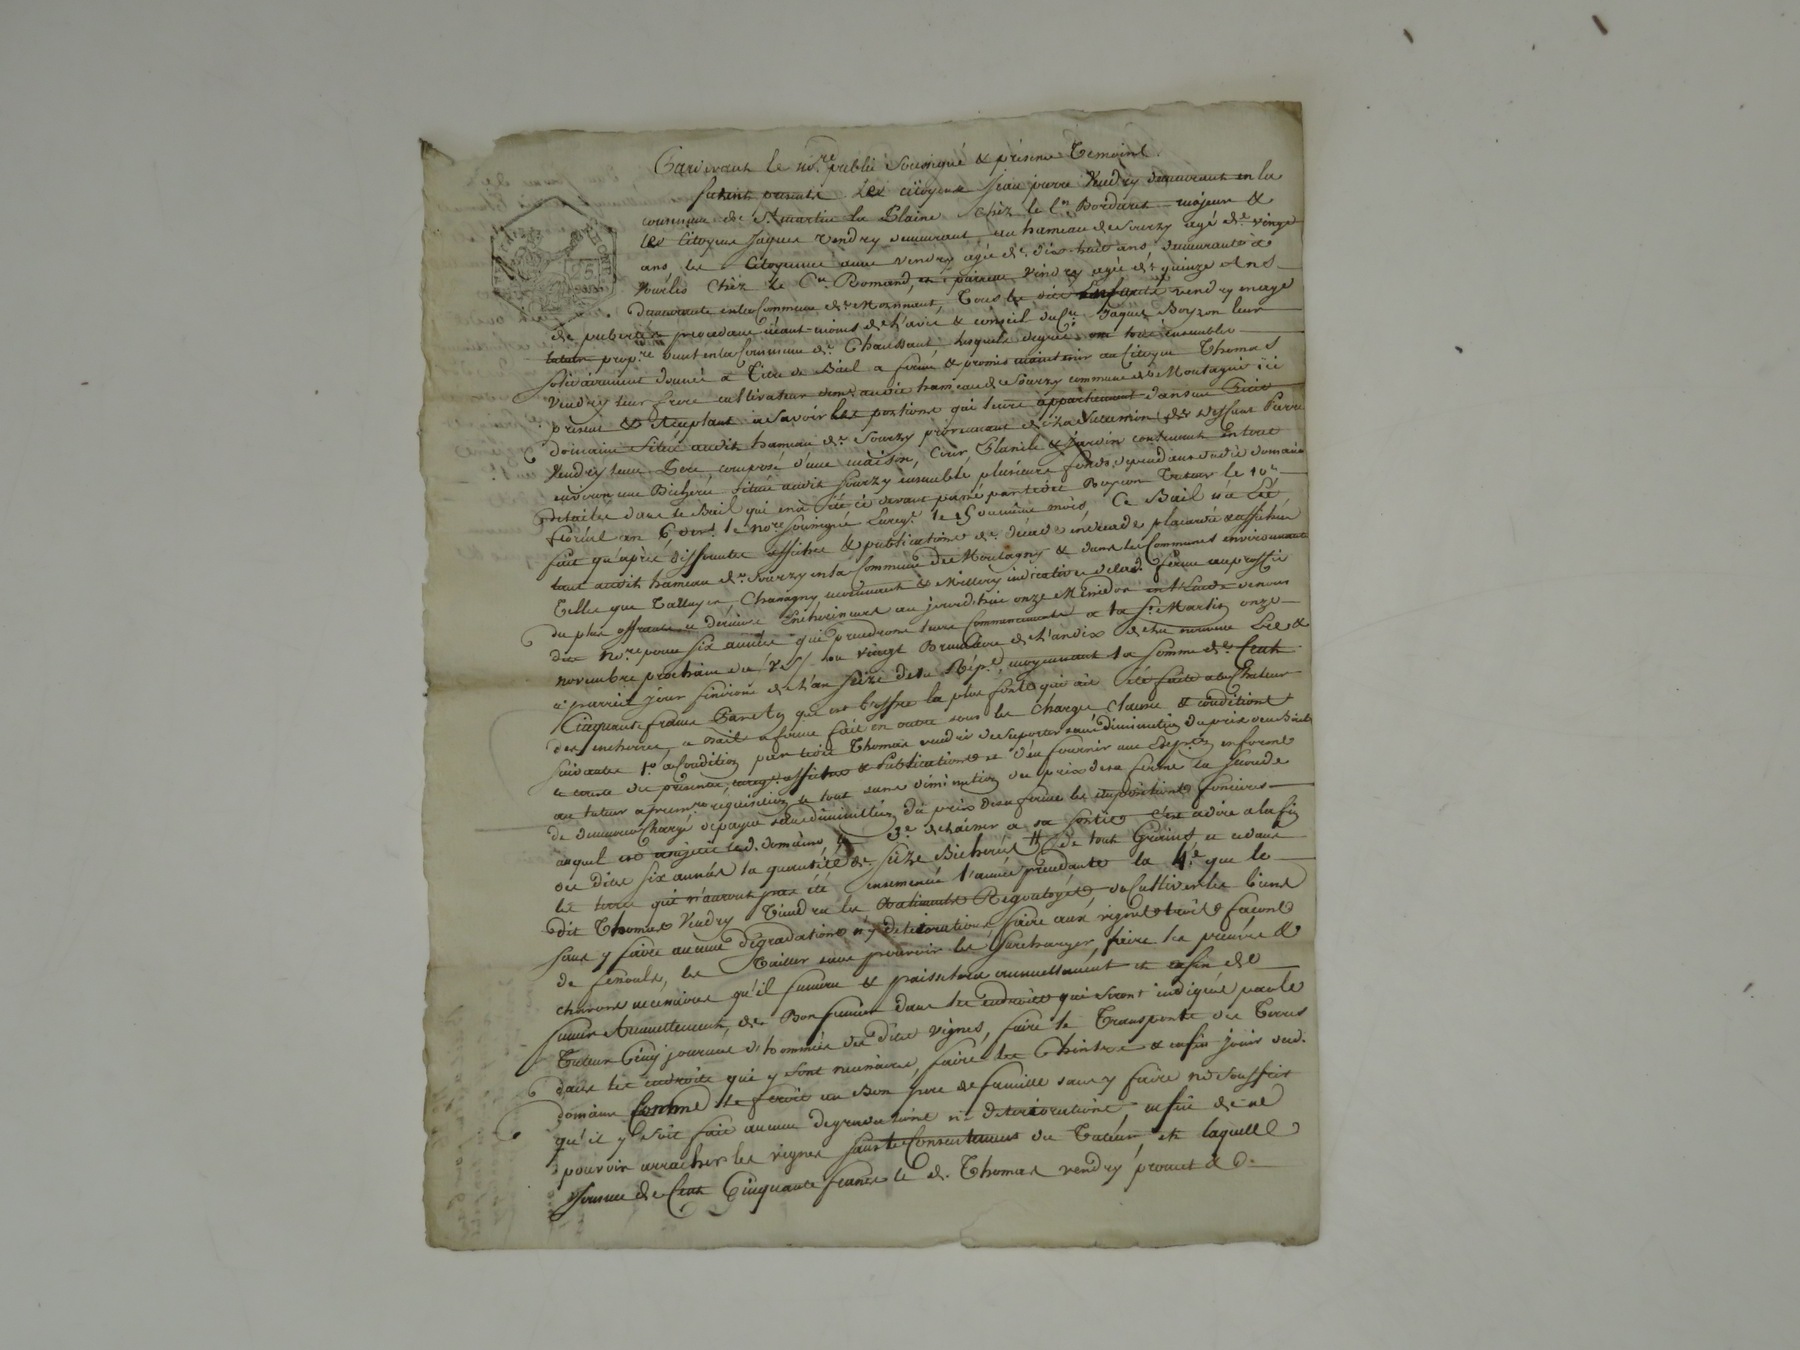 Pardevant le no.re public soussigné & présence Temoins.
furent présents les citoyens Jean pierre Vendry demeurant en la
commune de St martin la Plaine chèz le C.n Bordaret majeur &
les Citoyens Jaques Vendry demeurant au hameau de Sourzy agé de vingt
ans la Citoyenne anne vendry agée de dix-huit ans demeurante à
chèz le C.n Romand, et vendry agée de quinze Ans
demeurante en la Commune de Mornant, Tous les dits vendry
de puberté procedant de l'avis & conseil du C.n Jaques Boyron leur
tuteur prop.re en la Commune de Chaussant lesquels de gré tous ensemble
solidairement donné à Titre de Bail a ferme & promis maintenir au Citoyen Thomas
Vendry leur frere cultivateur audit hameau de Sourzy commune de Montagny ici
présent & acceptant à savoir les portions qui leurs appartiennent dans un Petit
domaine Situé audit hameau de Sourzy provenant de la succession de deffunt Pierre
Vendry leur Pere composé d'une maison, Cour, & Jardin contenant en tout
environ une Bicherée Située audit Sourzy ensemble plusieurs fonds dépendant dudit domaine
detailés dans le Bail qui en a été ci devant passé par ledit Boyron Tuteur le 10
floreal an 6 devant le no.re soussigné Enreg.é le 15 du même mois, Ce Bail n'a été
fait qu'après differentes affiches & publications de décade en décade placardé & affiché
tant audit hameau de Sourzy en la Commune de Montagny & dans les Communes environnantes
Telles que Taluyer, Chassagny & Millery indicatives de lad. ferme au proffit
du plus offrant & dernier Encherisseur au jourd'hui onze Messidor
dit No.re pour six années qui prendront leurs commencements a la S.t Martin onze
novembre prochain ou vingt Brumaire de l'an dix de la même Ere &
à pareil jour finiront de l'an seize de la Rép.e, moyennant la somme de Cent
Cinquante francs Par an qui est l'offre la plus forte qui ait été faite a la chaleur
des encheres, a bail a ferme fait en outre sous les charges clauses & conditions
suivantes 1.o a Condition par ledit Thomas vendry de suporter sans diminution du prix de
le coust du présent, enreg.t affiches & Publications & d'en fournir une Expé.on en forme
au tuteur a premiere réquisition le tout sans diminution du prix de la ferme la seconde
de demeurer Chargé de payer sans diminution du prix de sa ferme les impositions foncieres
auquel est assujetti led. domaine, la 3.e de laisser a sa sortie c'est a dire a la fin
des dites six années la quantité de seize Bicherées de tout Grains et ce dans
les terres qui n'auront pas été ensemencé l'année précedante la 4.e que le
dit Thomas Vendry Tiendra les Batiments Regoutoyés de Cultiver les biens
sans y faire aucune dégradations ny déteriorations, faire aux vignes trois façons
de fessoule, les Tailler sans pouvoir les surcharger, faire les preuves &
chavons necessaires qu'il fumera & paisselera annuellement et enfin de
fumer Annuellement, de Bon fumier dans les endroits qui seront indiqués par le
Tuteur Cinq journées d'hommées des dites vignes, faire le Transporte des Terres
dans les endroits qui y sont necessaires, faire les Chintres & enfin jouir dud.
domaine comme le feroit un Bon pere de famille sans y faire ni souffrir
qu'il y soit fait aucune degradations ni deteriorations, enfin de ne
pouvoir arracher les vignes sans le Consentement du Tuteur et laquelle
somme de Cent Cinquante francs le d. Thomas vendry promet & o